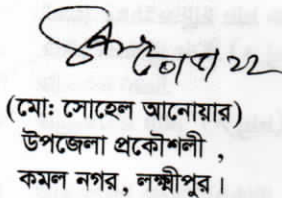 (মোঃ সোহেল আনোয়ার)
উপজেলা প্রকৌশলী ,
কমল নগর, লক্ষ্মীপুর ।